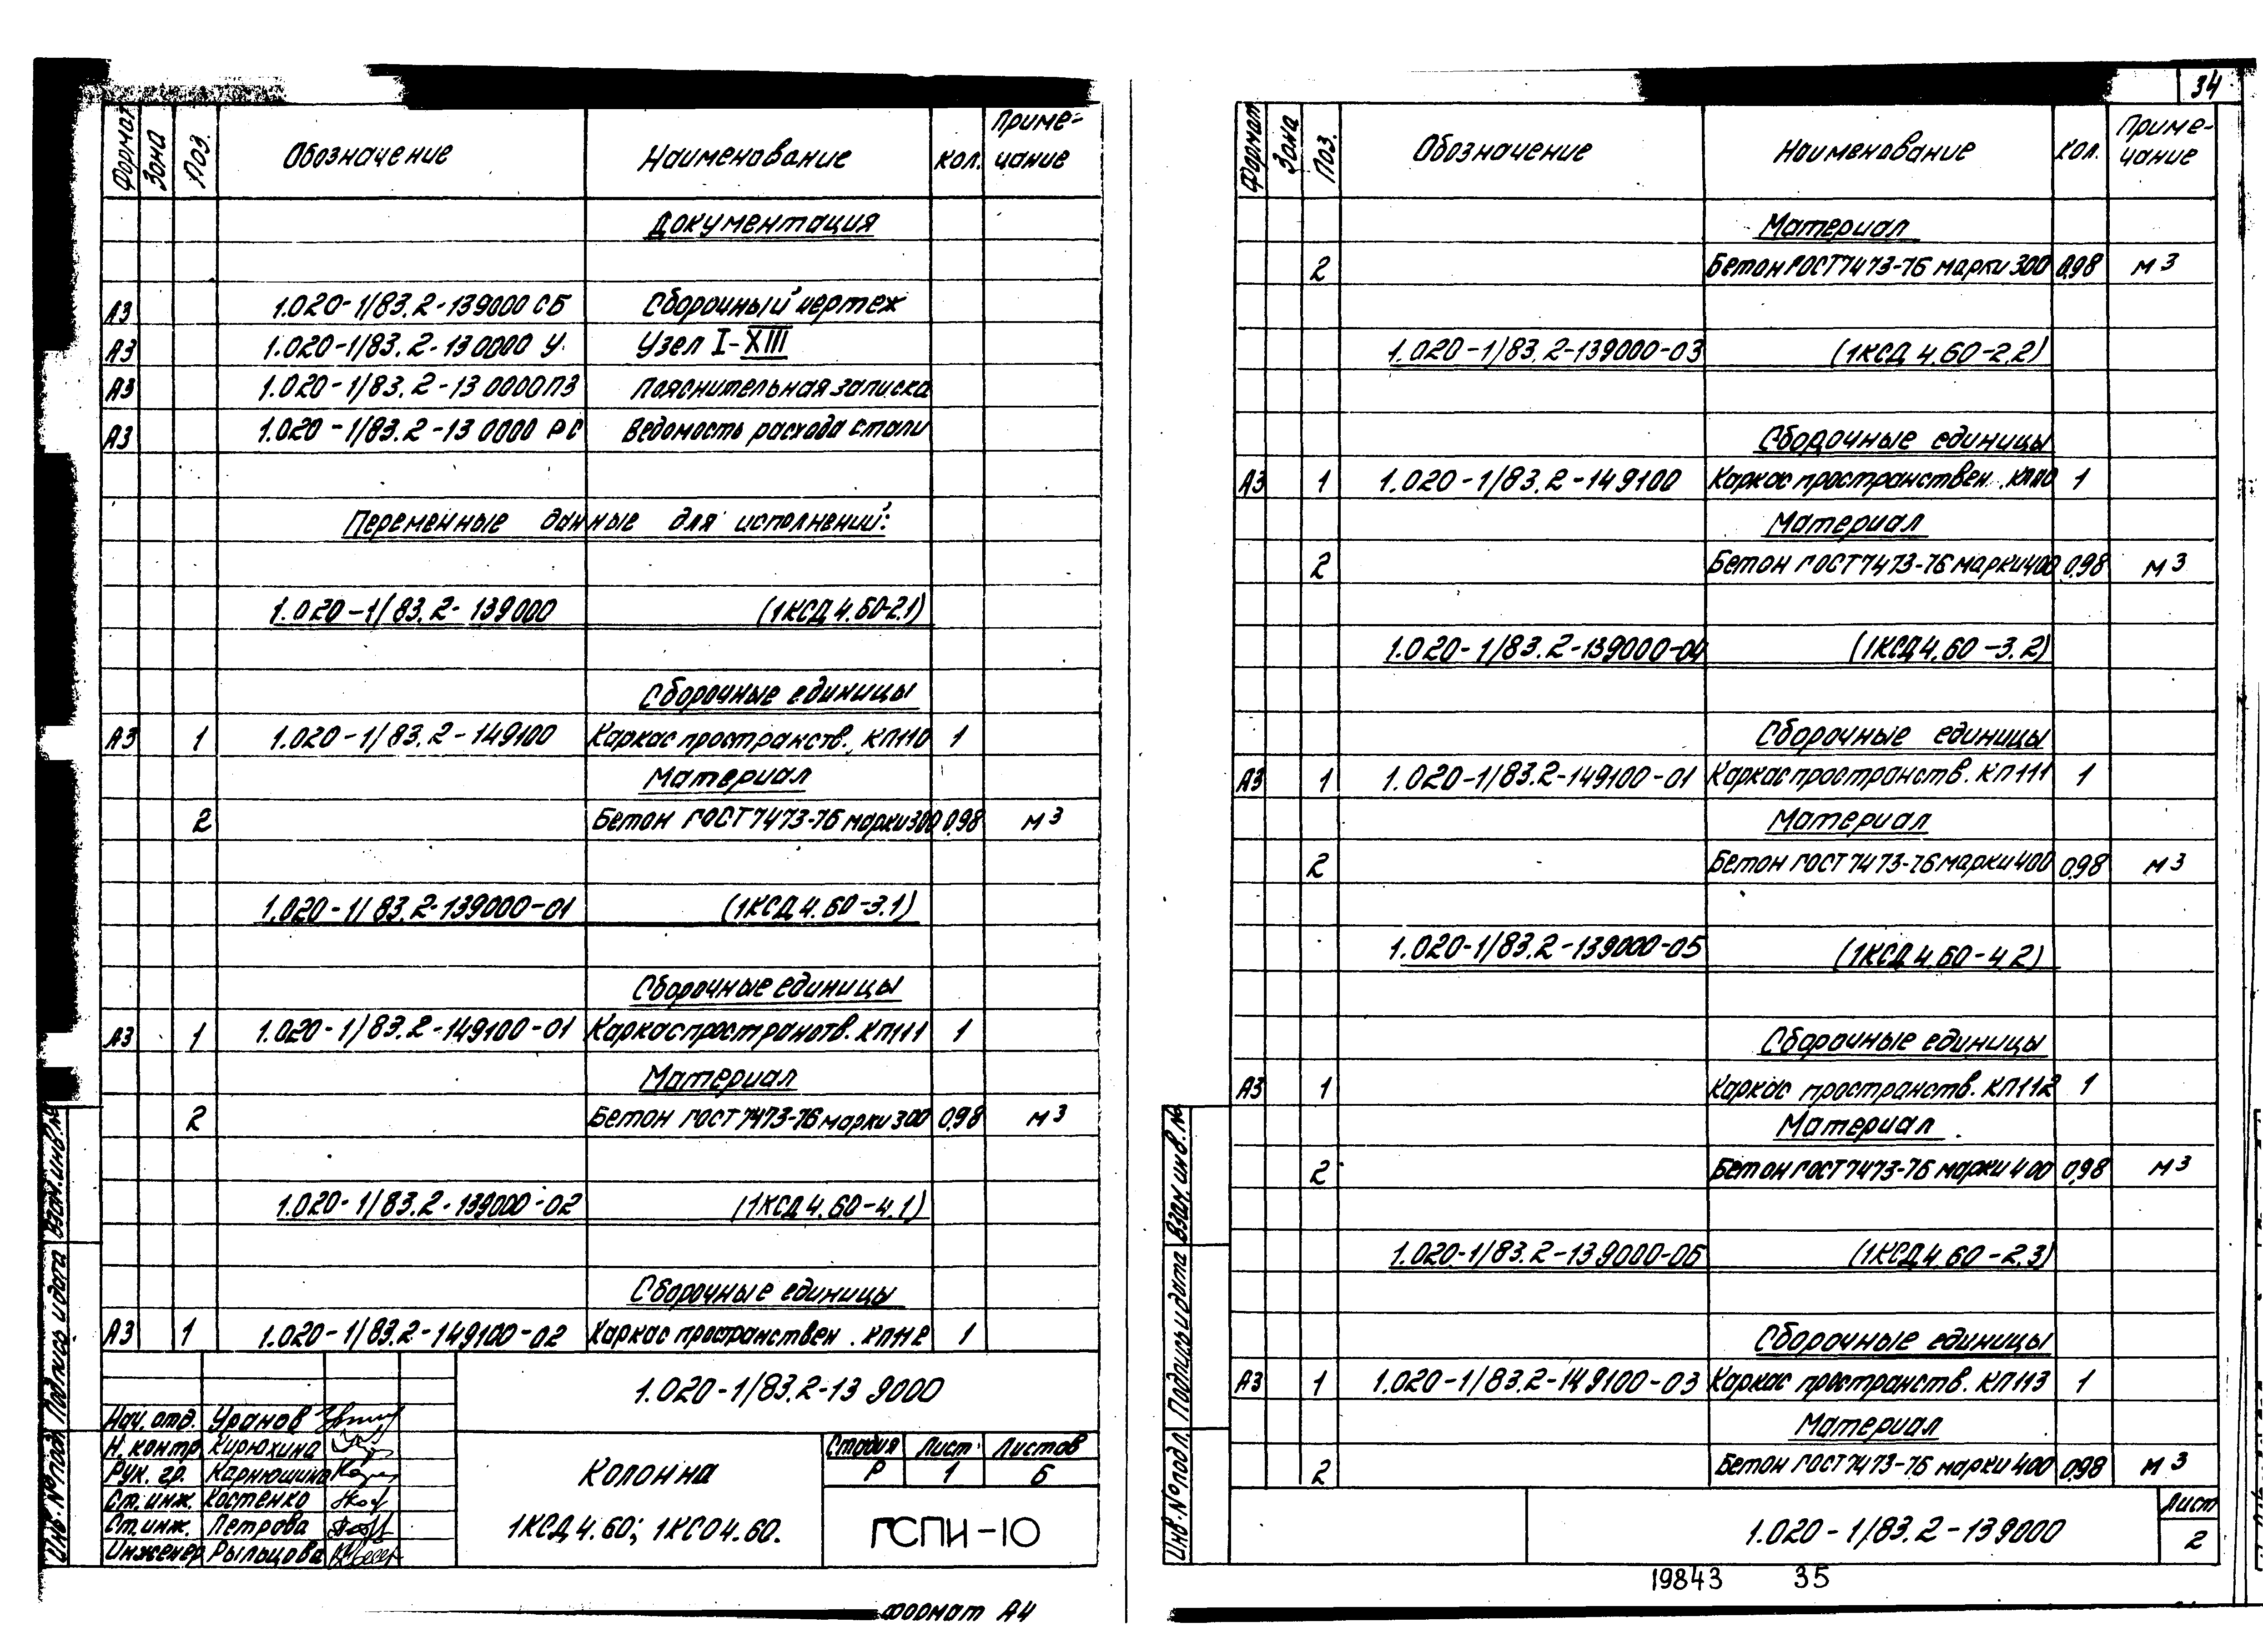 Формат Зона Поз. Обозначение Наименование кол. Приме-
чание
Документация
А3 1.020-1/83.2-139000 СБ Сборочный чертеж
А3 1.020-1/83.2-130000 У Узел I-XIII
А3 1.020-1/83.2-130000ПЗ Пояснительная записка
А3 1.020-1/83.2-130000 РС Ведомость расхода стали
Переменные данные для исполнений:
1.020-1/83.2-139000 (1КСД 4.60-2.1)
Сборочные единицы
А3 1 1.020-1/83.2-149100 Каркас пространств. КП110 1
Материал
2 Бетон ГОСТ 7473-76 марки 300 0,98 м3
1.020-1/83.2-139000-01 (1КСД 4.60-3.1)
Сборочные единицы
А3 1 1.020-1/83.2-149100-01 Каркас пространств. КП111 1
Материал
2 Бетон ГОСТ 7473-76 марки 300 0,98 м3
1.020-1/83.2-139000-02 (1КСД 4.60-4.1)
Сборочные единицы
А3 1 1.020-1/83.2-149100-02 Каркас пространствен. КП112 1
1.020-1/83.2-139000
Нач. отд. Уранов
Н. контр. Кирюхина
Рук. гр. Карнюшина
Ст. инж. Костенко
Ст. инж. Петрова
Инженер Рыльцова
Колонна
1КСД 4.60; 1КСО 4.60.
Стадия Лист Листов
Р 1 6
ГСПИ-10
Инв. № подл. Подпись и дата Взам. инв. №
Формат А4
34
Формат Зона Поз. Обозначение Наименование кол. Приме-
чание
Материал
2 Бетон ГОСТ 7473-76 марки 300 0,98 м3
1.020-1/83.2-139000-03 (1КСД 4.60-2.2)
Сборочные единицы
А3 1 1.020-1/83.2-149100 Каркас пространствен. КП110 1
Материал
2 Бетон ГОСТ 7473-76 марки 400 0,98 м3
1.020-1/83.2-139000-04 (1КСД 4.60-3.2)
Сборочные единицы
А3 1 1.020-1/83.2-149100-01 Каркас пространств. КП111 1
Материал
2 Бетон ГОСТ 7473-76 марки 400 0,98 м3
1.020-1/83.2-139000-05 (1КСД 4.60-4.2)
Сборочные единицы
А3 1 Каркас пространств. КП112 1
Материал
2 Бетон ГОСТ 7473-76 марки 400 0,98 м3
1.020-1/83.2-139000-06 (1КСД 4.60-2.3)
Сборочные единицы
А3 1 1.020-1/83.2-149100-03 Каркас пространств. КП113 1
Материал
2 Бетон ГОСТ 7473-76 марки 400 0,98 м3
1.020-1/83.2-139000
Лист
2
Инв. № подл. Подпись и дата Взам. инв. №
19843 35